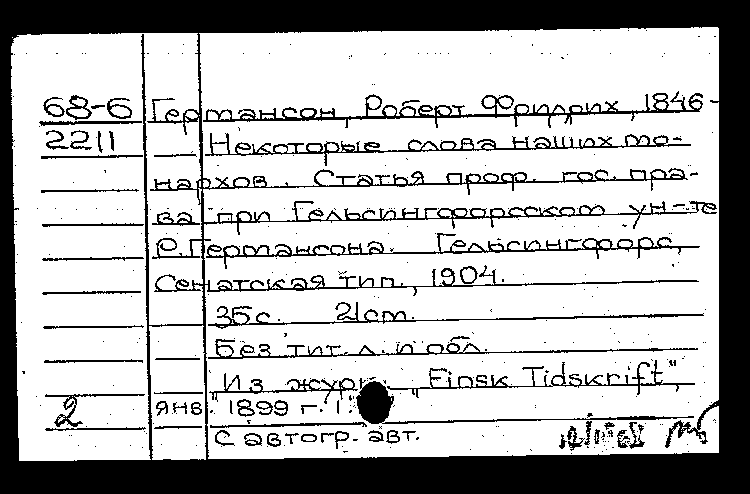 68-6 Германсон, Роберт Фридрих, 1846-
2211 Некоторые слова наших мо-
нархов. Статья проф. гос. пра-
ва при Гельсингфорсском ун-те
Р. Германсона. Гельсингфорс,
Сенатская тип., 1904.
35 с. 21 cm.
Без тит. л. и обл.
Из журн. "Finsk Tidskrift",
2 янв. 1899 г.
С автогр. авт.